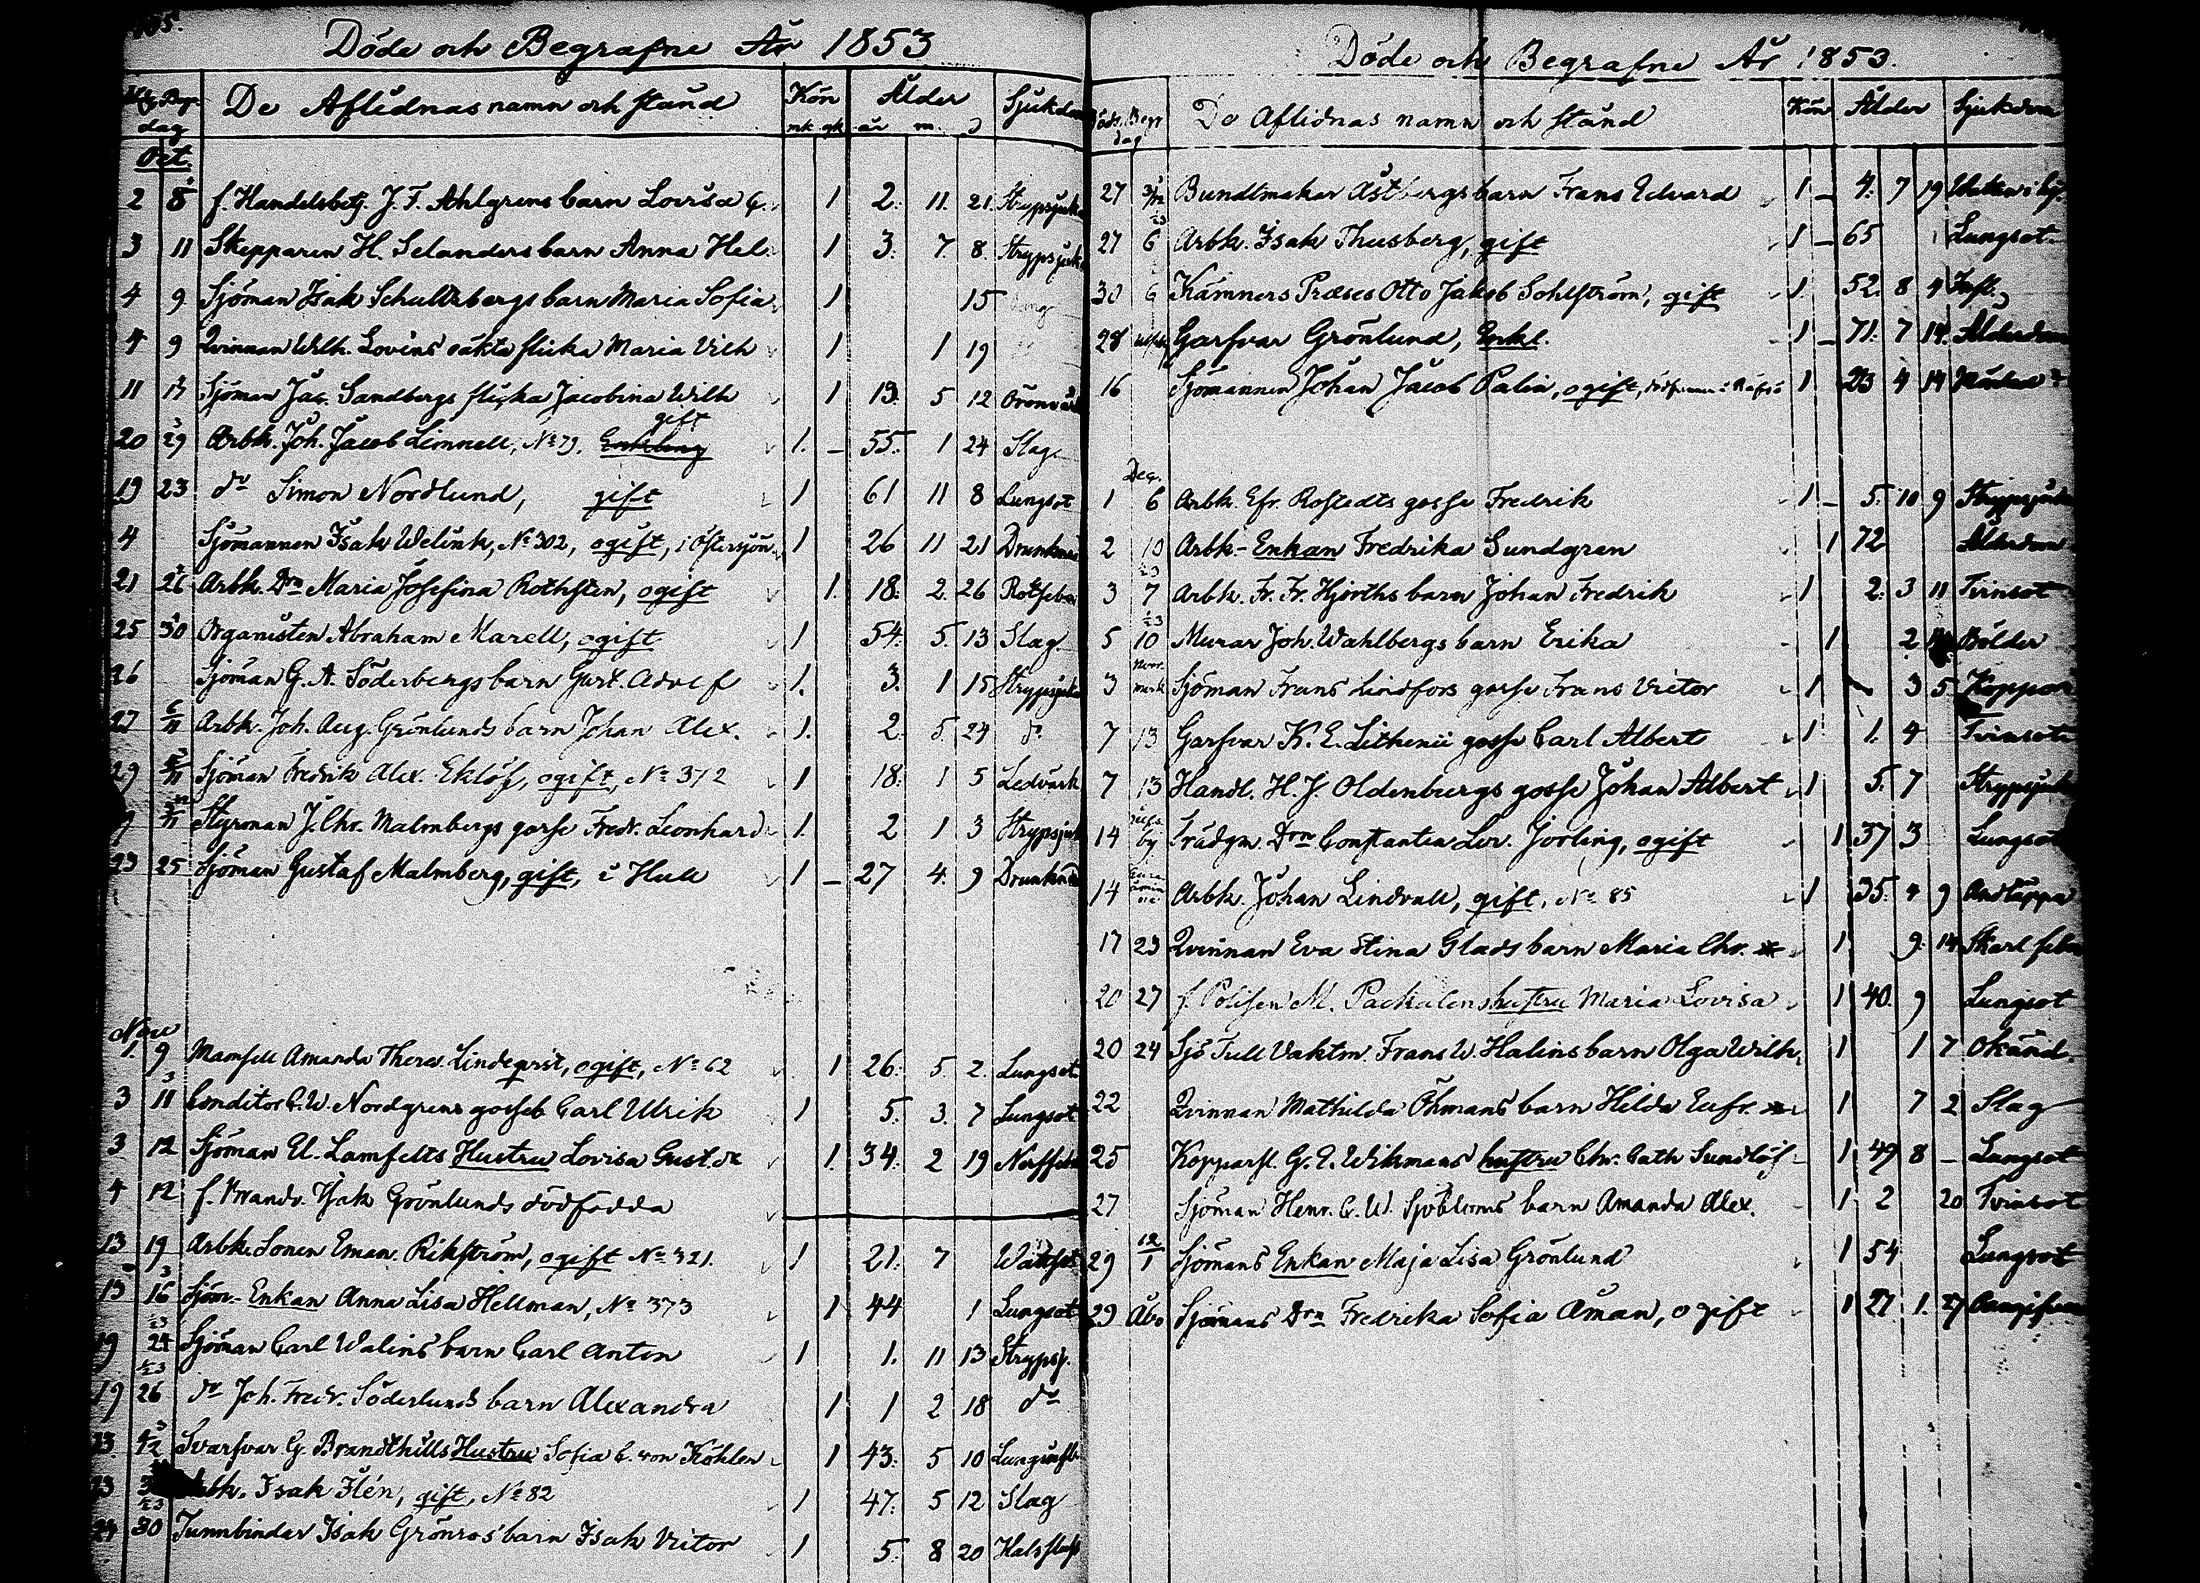 Döde och Begrafne År 1853
Begr. dag De Aflidnas namn och stand Kön mk qk Ålder år m. d Sjukdom
Oct.
2 8 f. Handelsbetj. J. F. Ahlgrens barn Lovisa 1 2. 11. 21. Strypsjuka
3 11 Skepparen H. Selanders barn Anna Hel. 1 3. 7. 8. Strypsjuka
4 9 Sjöman Isak Schultzbergs barn Maria Sofia 1 15
4 9 Qvinnan Wilh. Lovins oäkta flicka Maria Vilh 1 1 19
11 17 Sjöman Jac. Sandbergs flicka Jacobina Wilh 1 13. 5 12
gift
20 29 Arbk. Joh. Jacob Limnell, No 79. Enkling 1. – 55. 1 24 Slag
19 23 do Simon Nordlund, gift 1 61 11 8 Lungsot
4 Sjömannen Isak Welink, No 302, ogift, i Östersjön 1 26 11 21 Drunknad
21 26 Arbk. Drn Maria Josefina Rothsten, ogift 1. 18. 2. 26 Rötfeber
25 30 Organisten Abraham Marell, ogift 1 54. 5. 13 Slag
26 Sjöman G. A. Söderbergs barn Gust. Adolf 1. 3. 1 15 Strypsjuka
27 6/11 Arbk. Joh. Aug. Grönlunds barn Johan Alex. 1. 2 5 24 do
29 Sjöman Fredrik Alex. Eklöf, ogift, No 372 1 18. 1 5 Ledvärk
Styrman J. Chr. Malmbergs gosse Fredr. Leonhard 1. 2 1 3 Strypsjuk
23 25 Sjöman Gustaf Malmberg, gift, i Hull 1 – 27 4. 9 Drunknad
Nov
1. 9 Mamsell Amanda Theres. Lindeqvist, ogift, No 62 1 26. 5. 2. Lungsot
3 11 Conditor C. W. Nordgrens gosseb Carl Ulrik 1 5. 3. 7 Lungsot
3 12 Sjöman El. Lamfelts Hustru Lovisa Gust. 1. 34. 2 19 Nerffeb
4 12 f. Isak Grönlunds dödfödda
13 19 Arbk. Sonen Eman. Rikström, ogift No 321. 1 21. 7
13 16 Sjöm.- Enkan Anna Lisa Hellman, No 373 1 44 1 Lungsot
19 24 Sjöman Carl Walins barn Carl Anton 1 1. 11 13 Strypsj.
19 26 do Joh. Fredr. Söderlunds barn Alexandra 1 1 2 18 do
23 Svarfvar G. Brandthills Hustru Sofia C. von Köhler 1 43. 5 10
23 Arbk. Isak Flén, gift, No 82 1 47. 5 12 Slag
24 30 Tunnbindar Isak Grönros barn Isak Victor 1 5. 8 20 Halsfluss
Döde och Begrafne År 1853.
Döds. Begr dag De Aflidnas namn och stånd Kön Ålder Sjukdom
27 Bundtmakar Åstbergs barn Frans Edvard 1 – 4. 7 19
27 6 Arbk. Isak Thusberg, gift 1 – 65 Lungsot
30 6 Kämners Præses Otto Jakob Sohlström, gift 1. 52. 8 4
28 Garfvar Grönlund, Enkl. 1 – 71. 7 14. Ålderdom
16 Sjömannen Johan Jacob Palin, ogift, 1 23 4 14
Decr.
1 6 Arbk. Efr. Rostedts gosse Fredrik 1 – 5. 10 9 Strypsjuka
2 10 Arbk.- Enkan Fredrika Sundgren 1 72 Ålderdom
3 7 Arbk. Fr. Fr. Hjorths barn Johan Fredrik 1 2. 3 11 Tvinsot
5 10 Murar Joh. Wahlbergs barn Erika 1 2 Bölder
3 Sjöman Frans Lindfors gosse Frans Victor 1 3 5 Koppor
7 13 Garfvar K. E. Lithenii gosse Carl Albert 1 1. 4 Tvinsot
7 13 Handl. H. J. Oldenburgs gosse Johan Albert 1 5. 7 Strypsjuk
14 Trädgm. Drn Constantia Lov. Jorling, ogift 1 37 3 Lungsot
14 Arbk. Johan Lindvall, gift, No 85 1 35. 4 9 Andtäppa
17 23 Qvinnan Eva Stina Glads barn Maria Chr. 1 9. 14 Skarl feber
20 27 f. Polisen M. Packalens hustru Maria Lovisa 1 40. 9 Lungsot
20 24 Sjö Tull Vaktm. Frans W. Halins barn Olga Wilh. 1 1 7 Okänd.
22 Qvinnan Mathilda Öhmans barn Hilda Eufr. 1 7 2 Slag
25 Kopparsl. G. E. Wikmans hustru Chr. Cath Sundlöf 1 49 8 – Lungsot
27 Sjöman Henr. C. W. Sjöbloms barn Amanda Alex. 1 2 20 Tvinsot
29 12/1 Sjömans Enkan Maja Lisa Grönlund 1 54 Lungsot
29 Åbo Sjömans Drn Fredrika Sofia Åman, ogift 1 27 1. 27